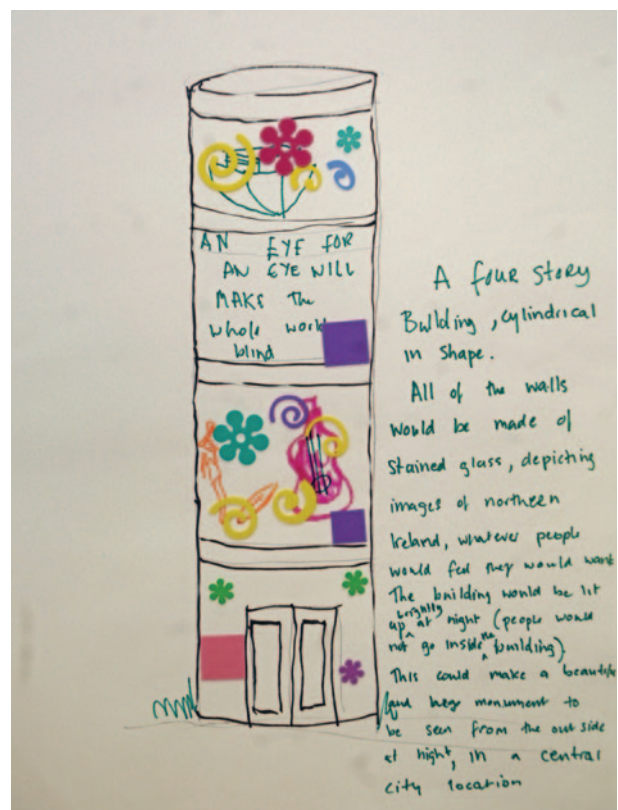 AN EYE FOR
AN EYE WILL
MAKE The
whole world
blind
A four story
Building, cylindrical
in shape.
All of the walls
would be made of
stained glass, depicting
images of northern
Ireland, whatever people
would feel they would want
The building would be lit
up brightly at night (people would
not go inside the building).
This could make a beautiful
and huge monument to
be seen from the outside
at night, in a central
city location